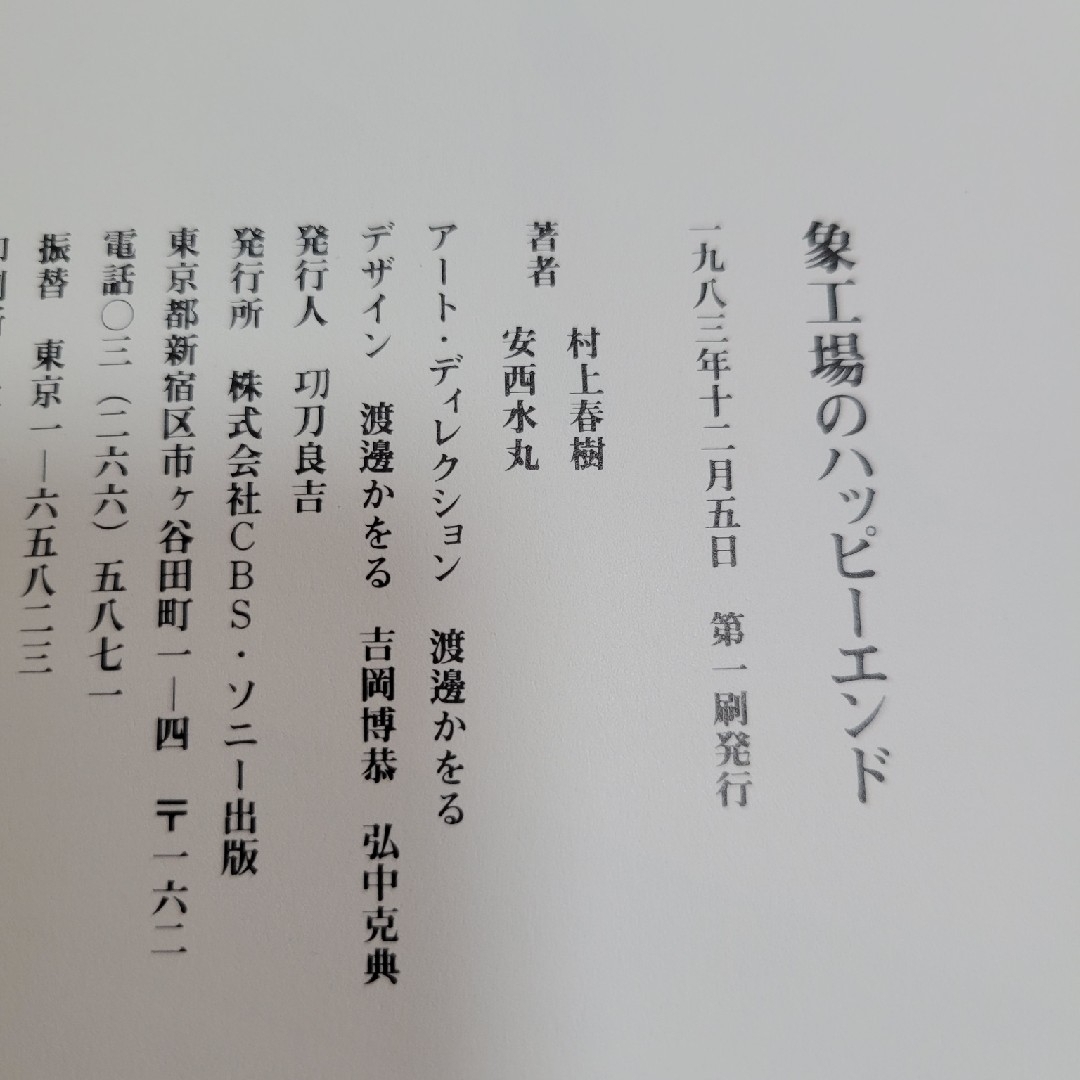 象工場のハッピーエンド
一九八三年十二月五日　第一刷発行
著者　村上春樹
安西水丸
アート・ディレクション　渡邊かをる
デザイン　渡邊かをる　吉岡博恭　弘中克典
発行人　功刀良吉
発行所　株式会社CBS・ソニー出版
東京都新宿区市ヶ谷田町一―四　〒一六二
電話〇三（二六六）五八七一
振替　東京一―六五八二三